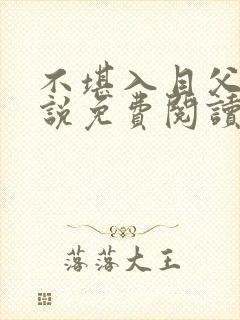 不堪入目父
說免費閱讀
落落大王